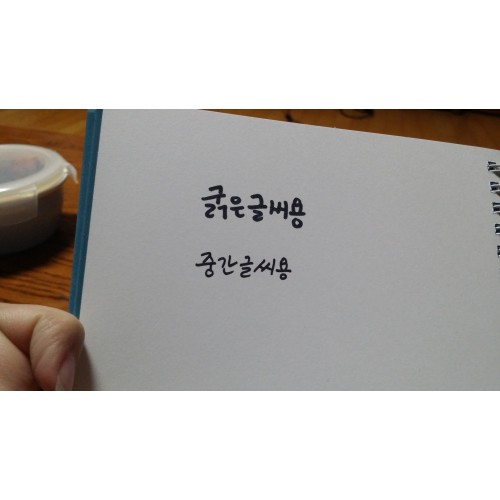 굵은글씨용
중간글씨용